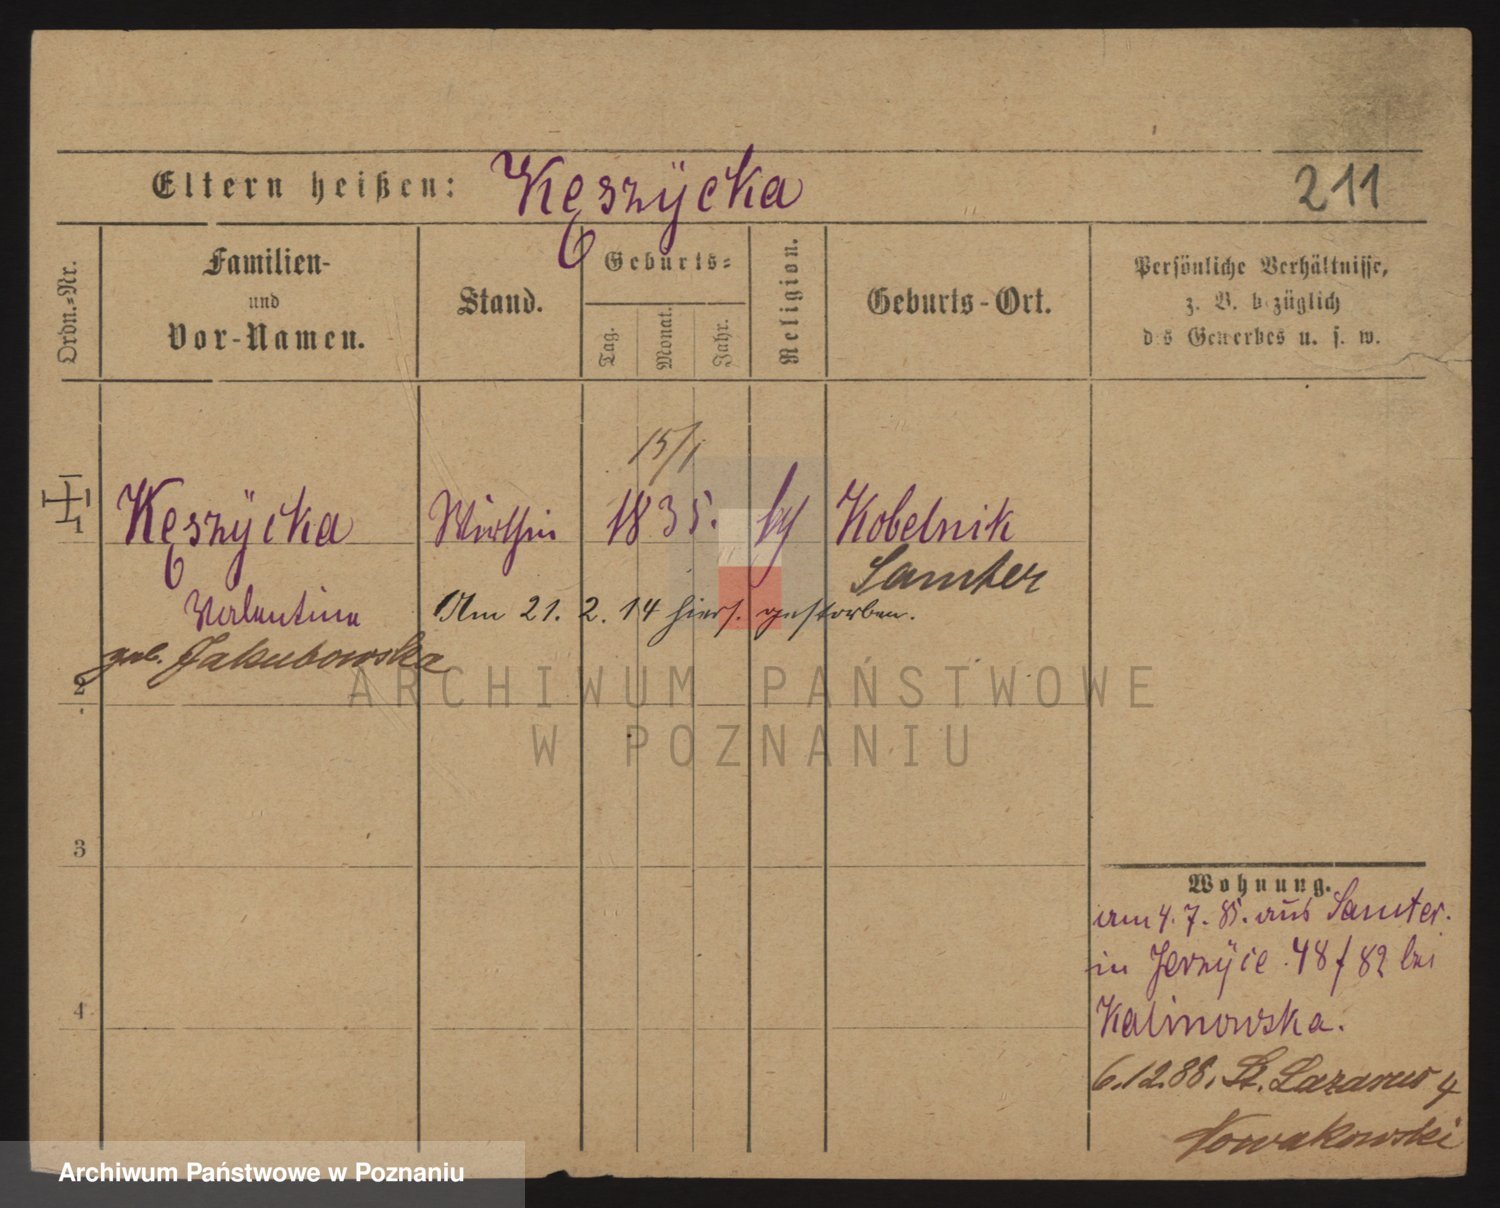 Eltern heißen: Kęszÿcka
211
Ordn.-Nr.
Familien-
und
Vor-Namen.
Stand.
Geburts-
Tag.
Monat.
Jahr.
Religion.
Geburts-Ort.
Persönliche Verhältnisse,
z. B. bezüglich
des Gewerbes u. s. w.
15/1
1 Kęszÿcka Wirthin 1835. Kobelnik
Samter
Valentina Am 21. 2. 14 hiers. gestorben.
geb. Jakubowska
2
ARCHIWUM PAŃSTWOWE
W POZNANIU
3
Wohnung.
am 4. 7. 85. aus Samter.
in Jerzÿce 48 f 82 bei
4
Kalinowska.
6.12.88. St. Lazarus 4
Nowakowski
Archiwum Państwowe w Poznaniu